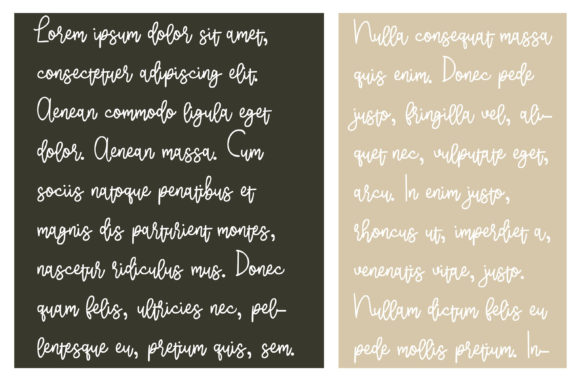 Lorem ipsum dolor sit amet,
consectetuer adipiscing elit.
Aenean commodo ligula eget
dolor. Aenean massa. Cum
sociis natoque penatibus et
magnis dis parturient montes,
nascetur ridiculus mus. Donec
quam felis, ultricies nec, pel-
lentesque eu, pretium quis, sem.
Nulla consequat massa
quis enim. Donec pede
justo, fringilla vel, ali-
quet nec, vulputate eget,
arcu. In enim justo,
rhoncus ut, imperdiet a,
venenatis vitae, justo.
Nullam dictum felis eu
pede mollis pretium. In-